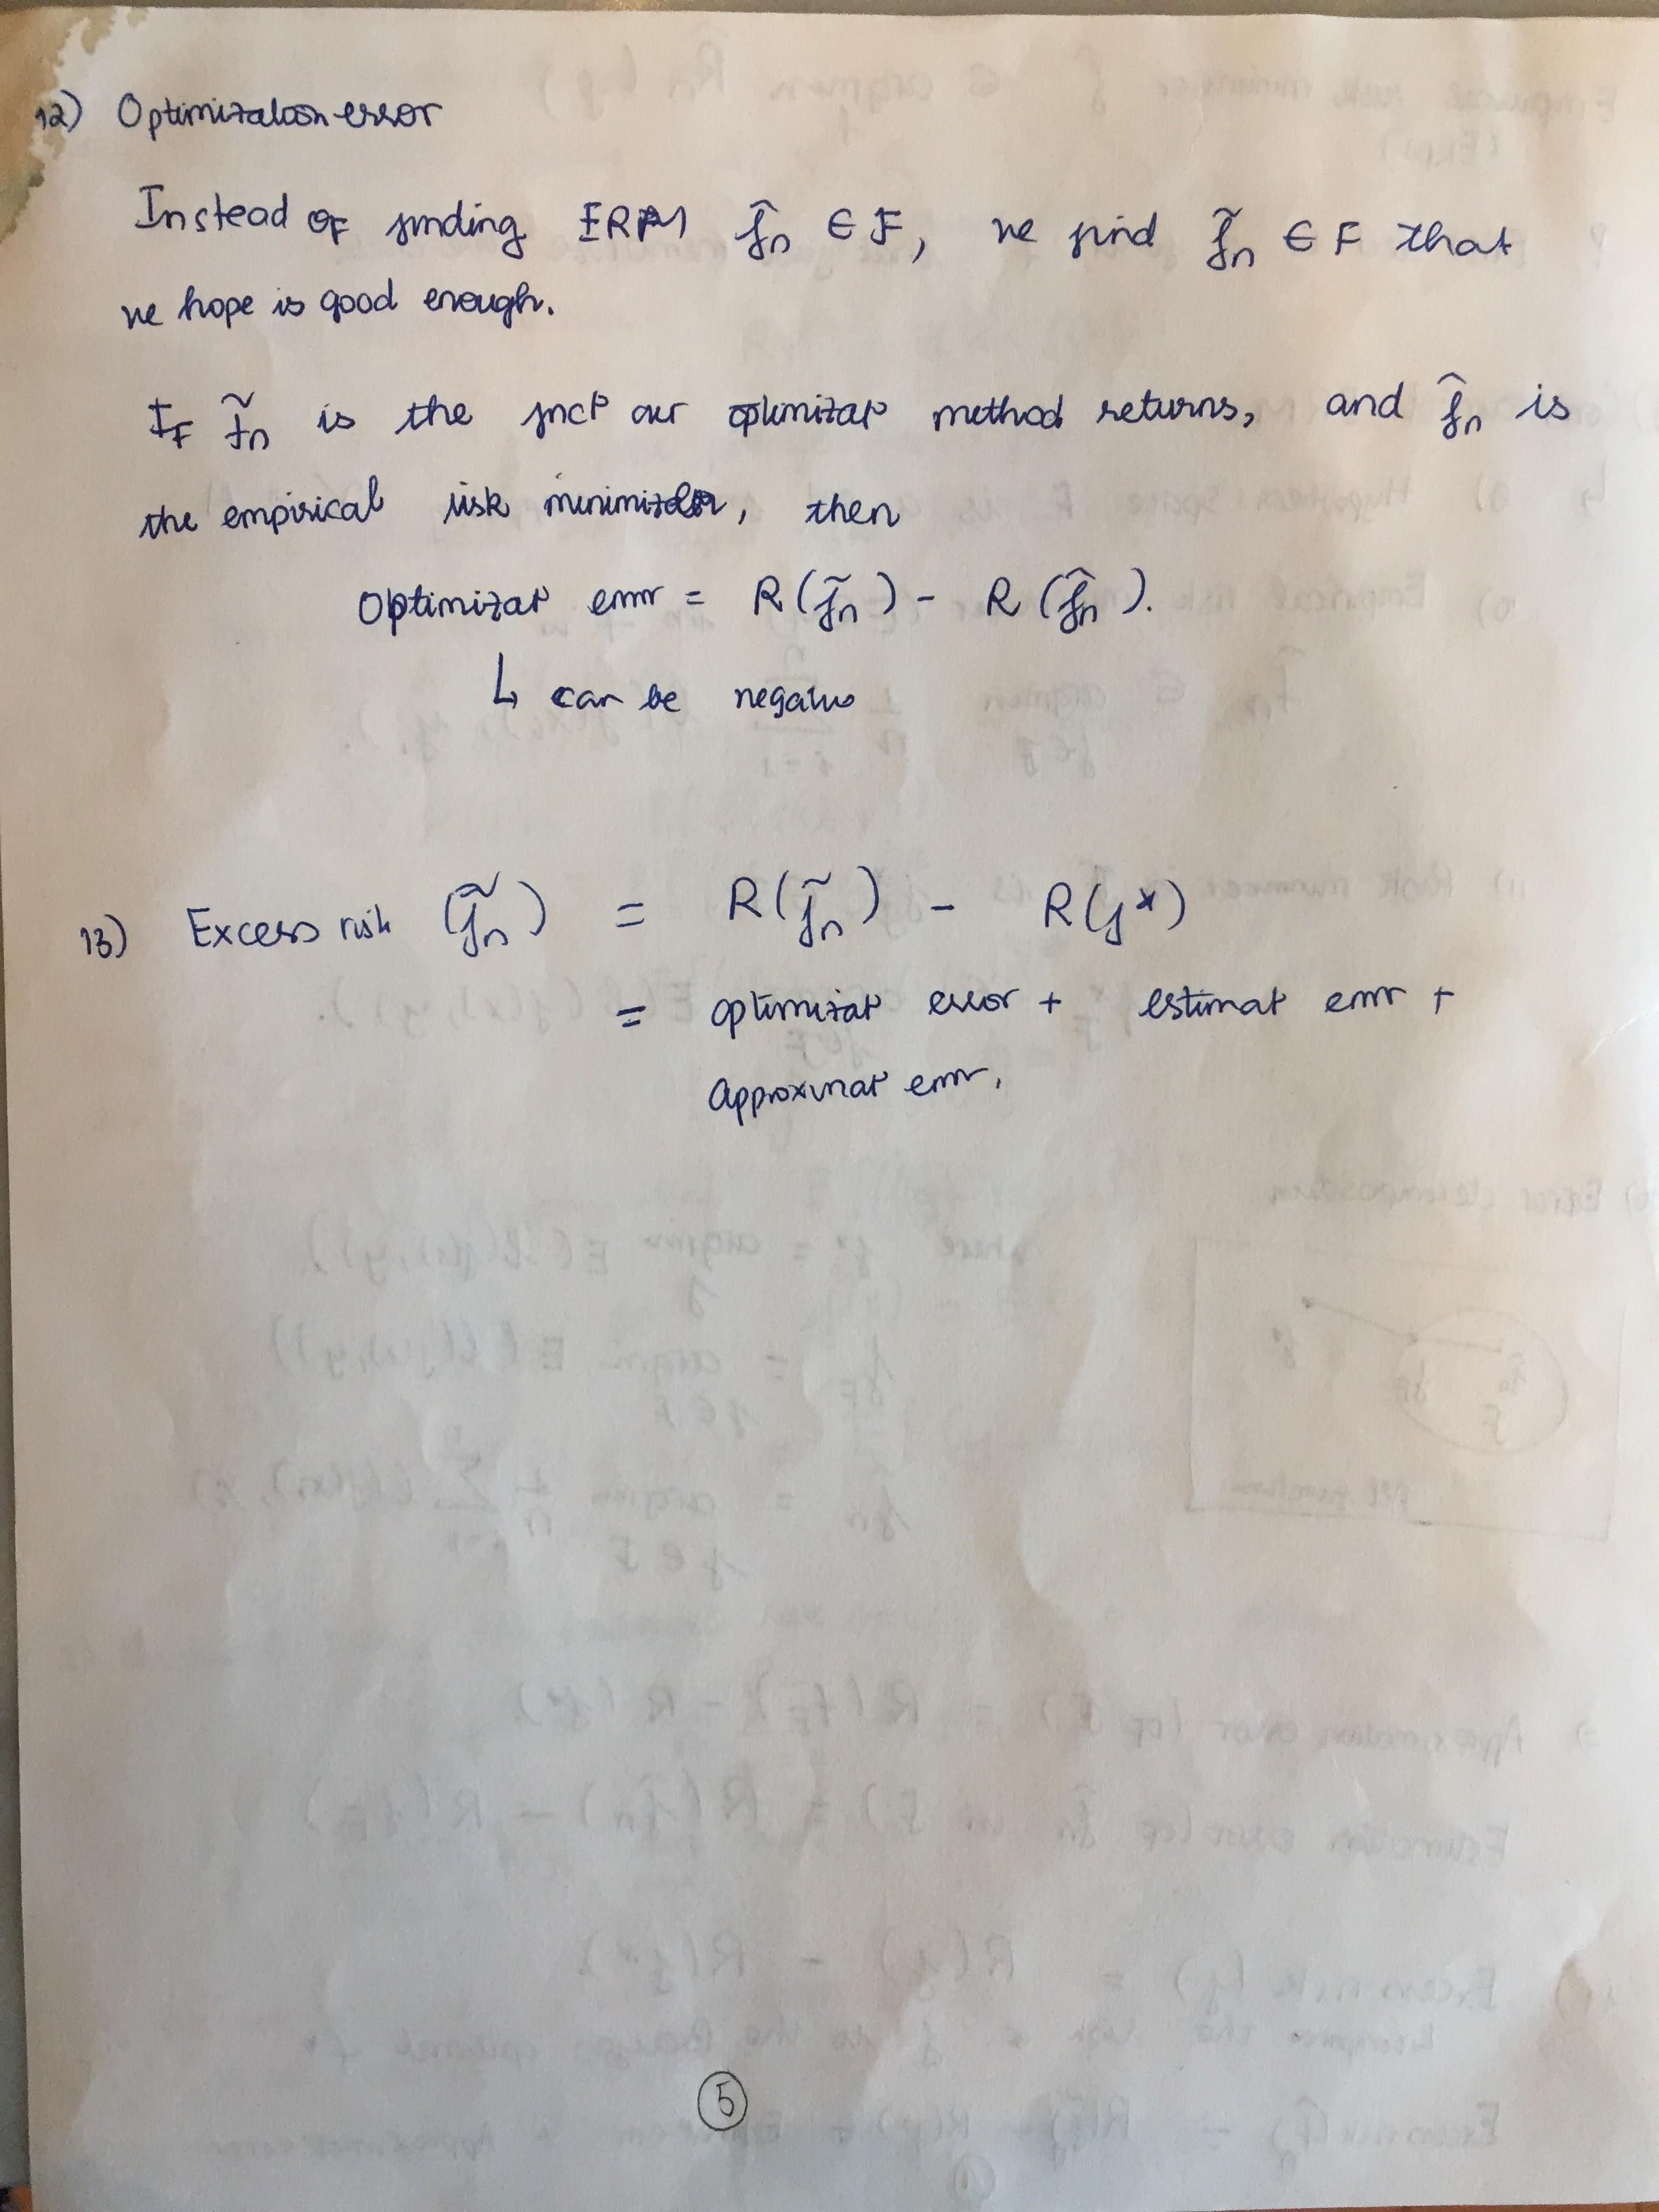 12) Optimization error
Instead of finding ERM f̂n ∈ F, we find f̃n ∈ F that
we hope is good enough.
If f̃n is the fncᵖ our optimizatᵖ method returns, and f̂n is
the empirical risk minimizer, then
Optimizatᵖ error = R(f̃n) - R(f̂n).
↳ can be negative
13) Excess risk (f̃n) = R(f̃n) - R(f*)
= optimizatᵖ error + estimatᵖ error +
Approximatᵖ error.
5